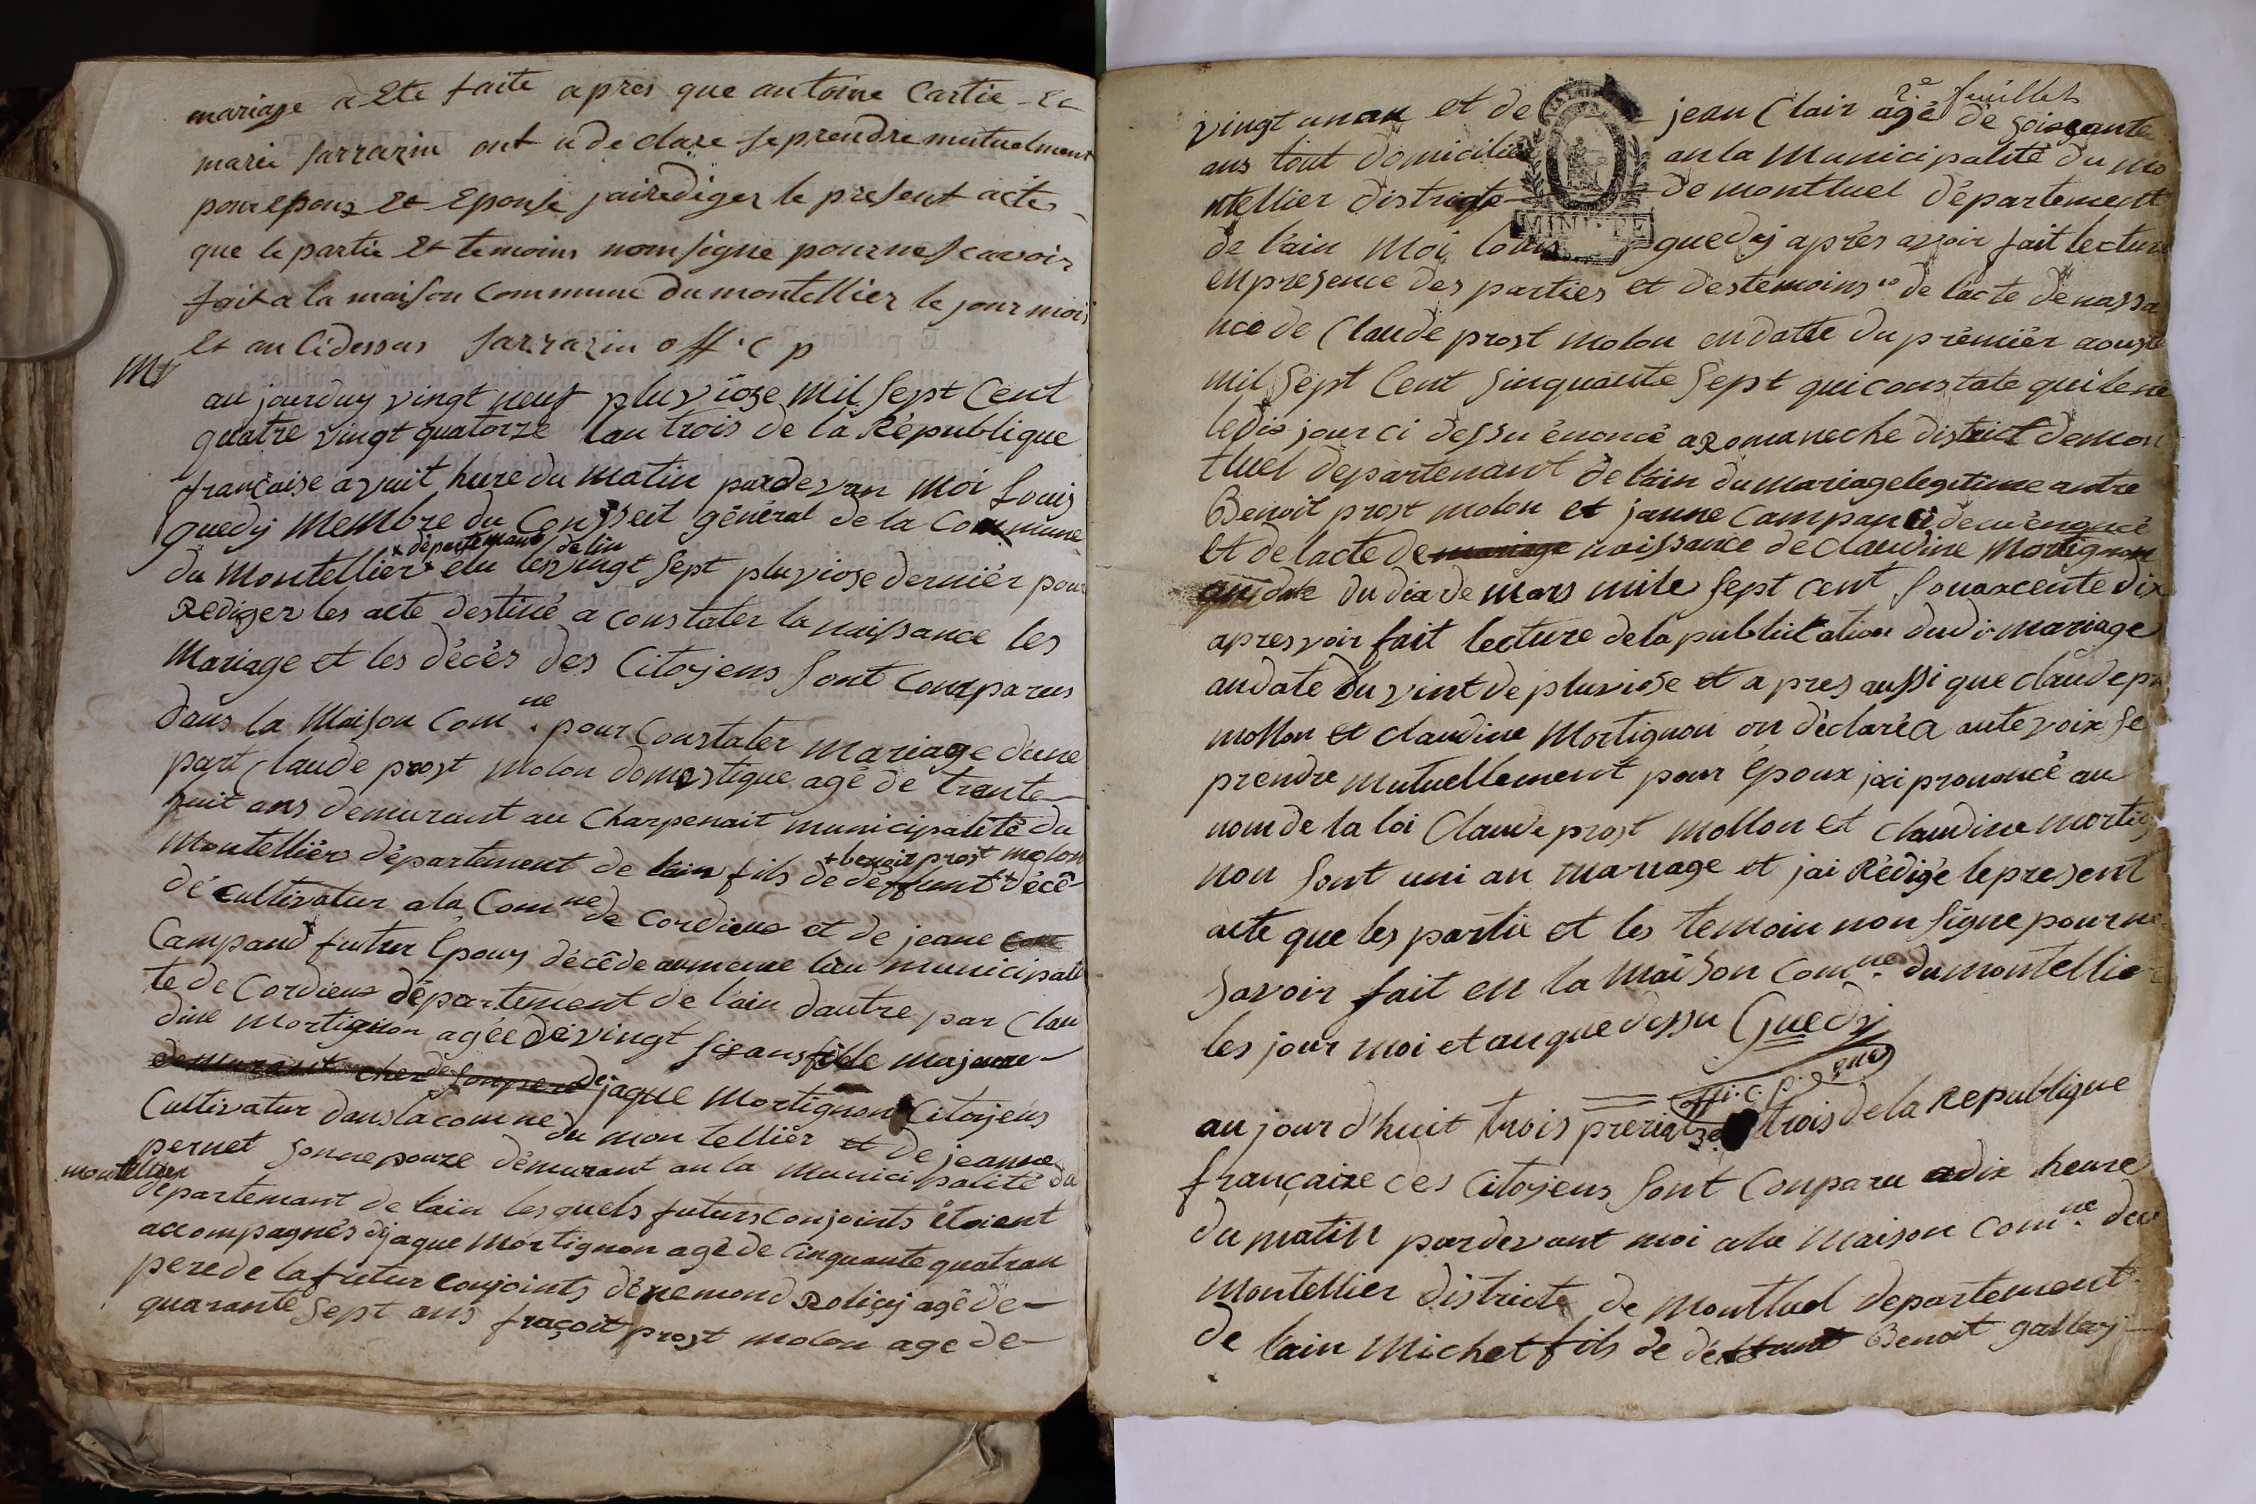 mariage a Ete faite apres que antoine Cartie Et
marie Sarrazin ont a declare se prendre mutuelment
pour Epoux Et Epouse jai rediger le present actes
que le partie Et temoins nom signe pour ne scavoir
fait a la maison Commune du montellier le jour mois
Et an Cidessus Sarrazin off. c p
au jourduy vingt neuf pluviose mil sept Cent
quatre vingt quatorze lan trois de la République
française a vuit hure du matin pardevan moi Louis
Guedy membre du Conseil géneral de la Commune
x département de lin
du montellier x elu le vingt sept pluviose derniér pour
Rediger les acte destiné a constater la naissance les
Mariage et les décès des Citojens sont Comparus
dans la Maison Com.ne pour Constater mariage dune
part Claude prost molon domestique agé de trente
huit ans demurant au Charpenait municipalité du
+ benoit prost molon
Montelliér département de lain fils de deffunt + décé
dé Cultivatur a la Com.ne de Cordieux et de jeane
Campand futur Epoux décêde au meme lieu municipali
te de Cordieux département de l'ain dautre par Clau
dine mortignon agée de vingt six ans fille majeure
demurant chez de son pere de jaque Mortignon Citojens
Cultivatur dans la comne du montelliér et de jeanne
pernet son nepouze démurant au la municipalité du
montellier
departemant de lain lesquels futurs conjoints étoient
accompagnés dj jaque Mortignon agé de cinquante quatran
pere de la futur Conjoints dénemond Rolicj agé de
quarante sept ans fraçoit prost molon age de
2.e feuillet
vingt un an et de jean Clair agé de soixante
ans tout domicilié an la Municipalité du mo
MINUTE
ntellier districte de montluel département
de lain Moi Louis guedy aprés avoir fait lecture
en presence des parties et des temoins 1o de lacte de nassa
nce de Claude prost molon en datte du prémiér aouste
mil sept Cent sinquante sept qui constate quil ene
ledis jour ci dessu énoncé a Romaneche district de mon
tluel departenant de lain du mariage legitime antre
Benoit prost molon et janne Campan cideau énoncé
et de lacte de mariage naissance de claudine Mortignon
du dix de mars mile sept cent souaxcente dix
apres voir fait lecture de la publication dudi mariage
an date du vint de pluviose et apres aussi que claude pro
mollon et claudine Mortignon on déclaré a aute voix se
prendre mutuellement pour Epoux jai prononcé au
nom de la loi Claude prost mollon et claudine mortig
non sont uni an mariage et jai Rédigé le present
acte que les partie et les temoin non signe pour ne
savoir fait en la maison Com.ne du montellier
les jour moi et an que dessu Guedy
offi. C. P.
au jour d'huit trois prerial trois de la République
françaize ces Citojens sont Conparu a dix heure
du matin pardevant moi a la Maison Com.ne du
Montellier districte de Montluel departement
de lain Michel fils de défunt Benoit gallay